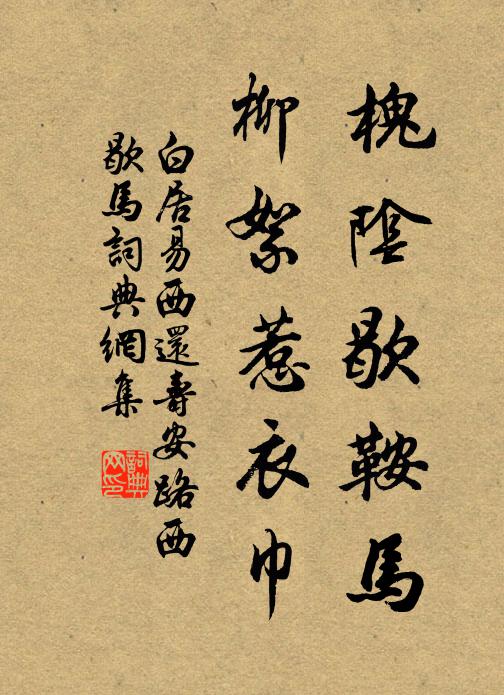 槐陰歇鞍馬
柳絮惹衣巾
白居易西還壽安路西
歇馬詞典網集
詞典
网印